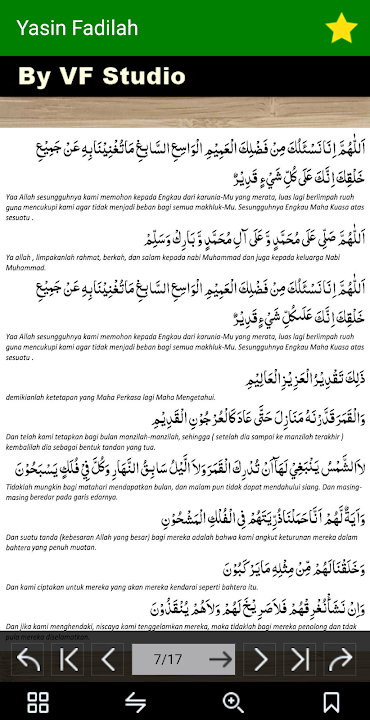 Yasin Fadilah
By VF Studio
اَللّٰهُمَّ اِنَّا نَسْئَلُكَ مِنْ فَضْلِكَ الْعَمِيْمِ الْوَاسِعِ السَّابِغِ مَا تُغْنِيْنَا بِهِ عَنْ جَمِيْعِ
خَلْقِكَ اِنَّكَ عَلَى كُلِّ شَيْءٍ قَدِيْرٌ
Yaa Allah sesungguhnya kami memohon kepada Engkau dari karunia-Mu yang merata, luas lagi berlimpah ruah
guna mencukupi kami agar tidak menjadi beban bagi semua makhluk-Mu. Sesungguhnya Engkau Maha Kuasa atas
sesuatu .
اَللّٰهُمَّ صَلِّى عَلَى مُحَمَّدٍ وَّ عَلَى آلِ مُحَمَّدٍ وَّ بَارِكْ وَسَلِّمْ
Ya allah , limpakanlah rahmat, berkah, dan salam kepada nabi Muhammad dan juga kepada keluarga Nabi
Muhammad.
اَللّٰهُمَّ اِنَّا نَسْئَلُكَ مِنْ فَضْلِكَ الْعَمِيْمِ الْوَاسِعِ السَّابِغِ مَا تُغْنِيْنَا بِهِ عَنْ جَمِيْعِ
خَلْقِكَ اِنَّكَ عَلَى كُلِّ شَيْءٍ قَدِيْرٌ
Yaa Allah sesungguhnya kami memohon kepada Engkau dari karunia-Mu yang merata, luas lagi berlimpah ruah
guna mencukupi kami agar tidak menjadi beban bagi semua makhluk-Mu. Sesungguhnya Engkau Maha Kuasa atas
sesuatu .
ذٰلِكَ تَقْدِيْرُ الْعَزِيْزِ الْعَلِيْمِ
demikianlah ketetapan yang Maha Perkasa lagi Maha Mengetahui.
وَالْقَمَرَ قَدَّرْنَهُ مَنَازِلَ حَتَّى عَادَ كَالْعُرْجُوْنِ الْقَدِيْمِ
Dan telah kami tetapkan bagi bulan manzilah-manzilah, sehingga ( setelah dia sampai ke manzilah terakhir )
kembalilah dia sebagai bentuk tandan yang tua.
لاَ الشَّمْسُ يَنْبَغِيْ لَهَآ اَنْ تُدْرِكَ الْقَمَرَ وَلاَ الَّيْلُ سَابِقُ النَّهَارِ وَكُلٌّ فِيْ فَلَكٍ يَسْبَحُوْنَ
Tidaklah mungkin bagi matahari mendapatkan bulan, dan malam pun tidak dapat mendahului siang. Dan masing-
masing beredar pada garis edarnya.
وَاٰيَةٌ لَّهُمْ اَنَّا حَمَلْنَا ذُرِّيَّتَهُمْ فِي الْفُلْكِ الْمَشْحُوْنِ
Dan suatu tanda (kebesaran Allah yang besar) bagi mereka adalah bahwa kami angkut keturunan mereka dalam
bahtera yang penuh muatan.
وَخَلَقْنَا لَهُمْ مِّنْ مِثْلِهِ مَا يَرْكَبُوْنَ
Dan kami ciptakan untuk mereka yang akan mereka kendarai seperti bahtera itu.
وَاِنْ نَشَأْ نُغْرِقْهُمْ فَلاَ صَرِيْخَ لَهُمْ وَلاَ هُمْ يُنْقَذُوْنَ
Dan jika kami menghendaki, niscaya kami tenggelamkan mereka, maka tidaklah bagi mereka penolong dan tidak
pula mereka diselamatkan.
7/17